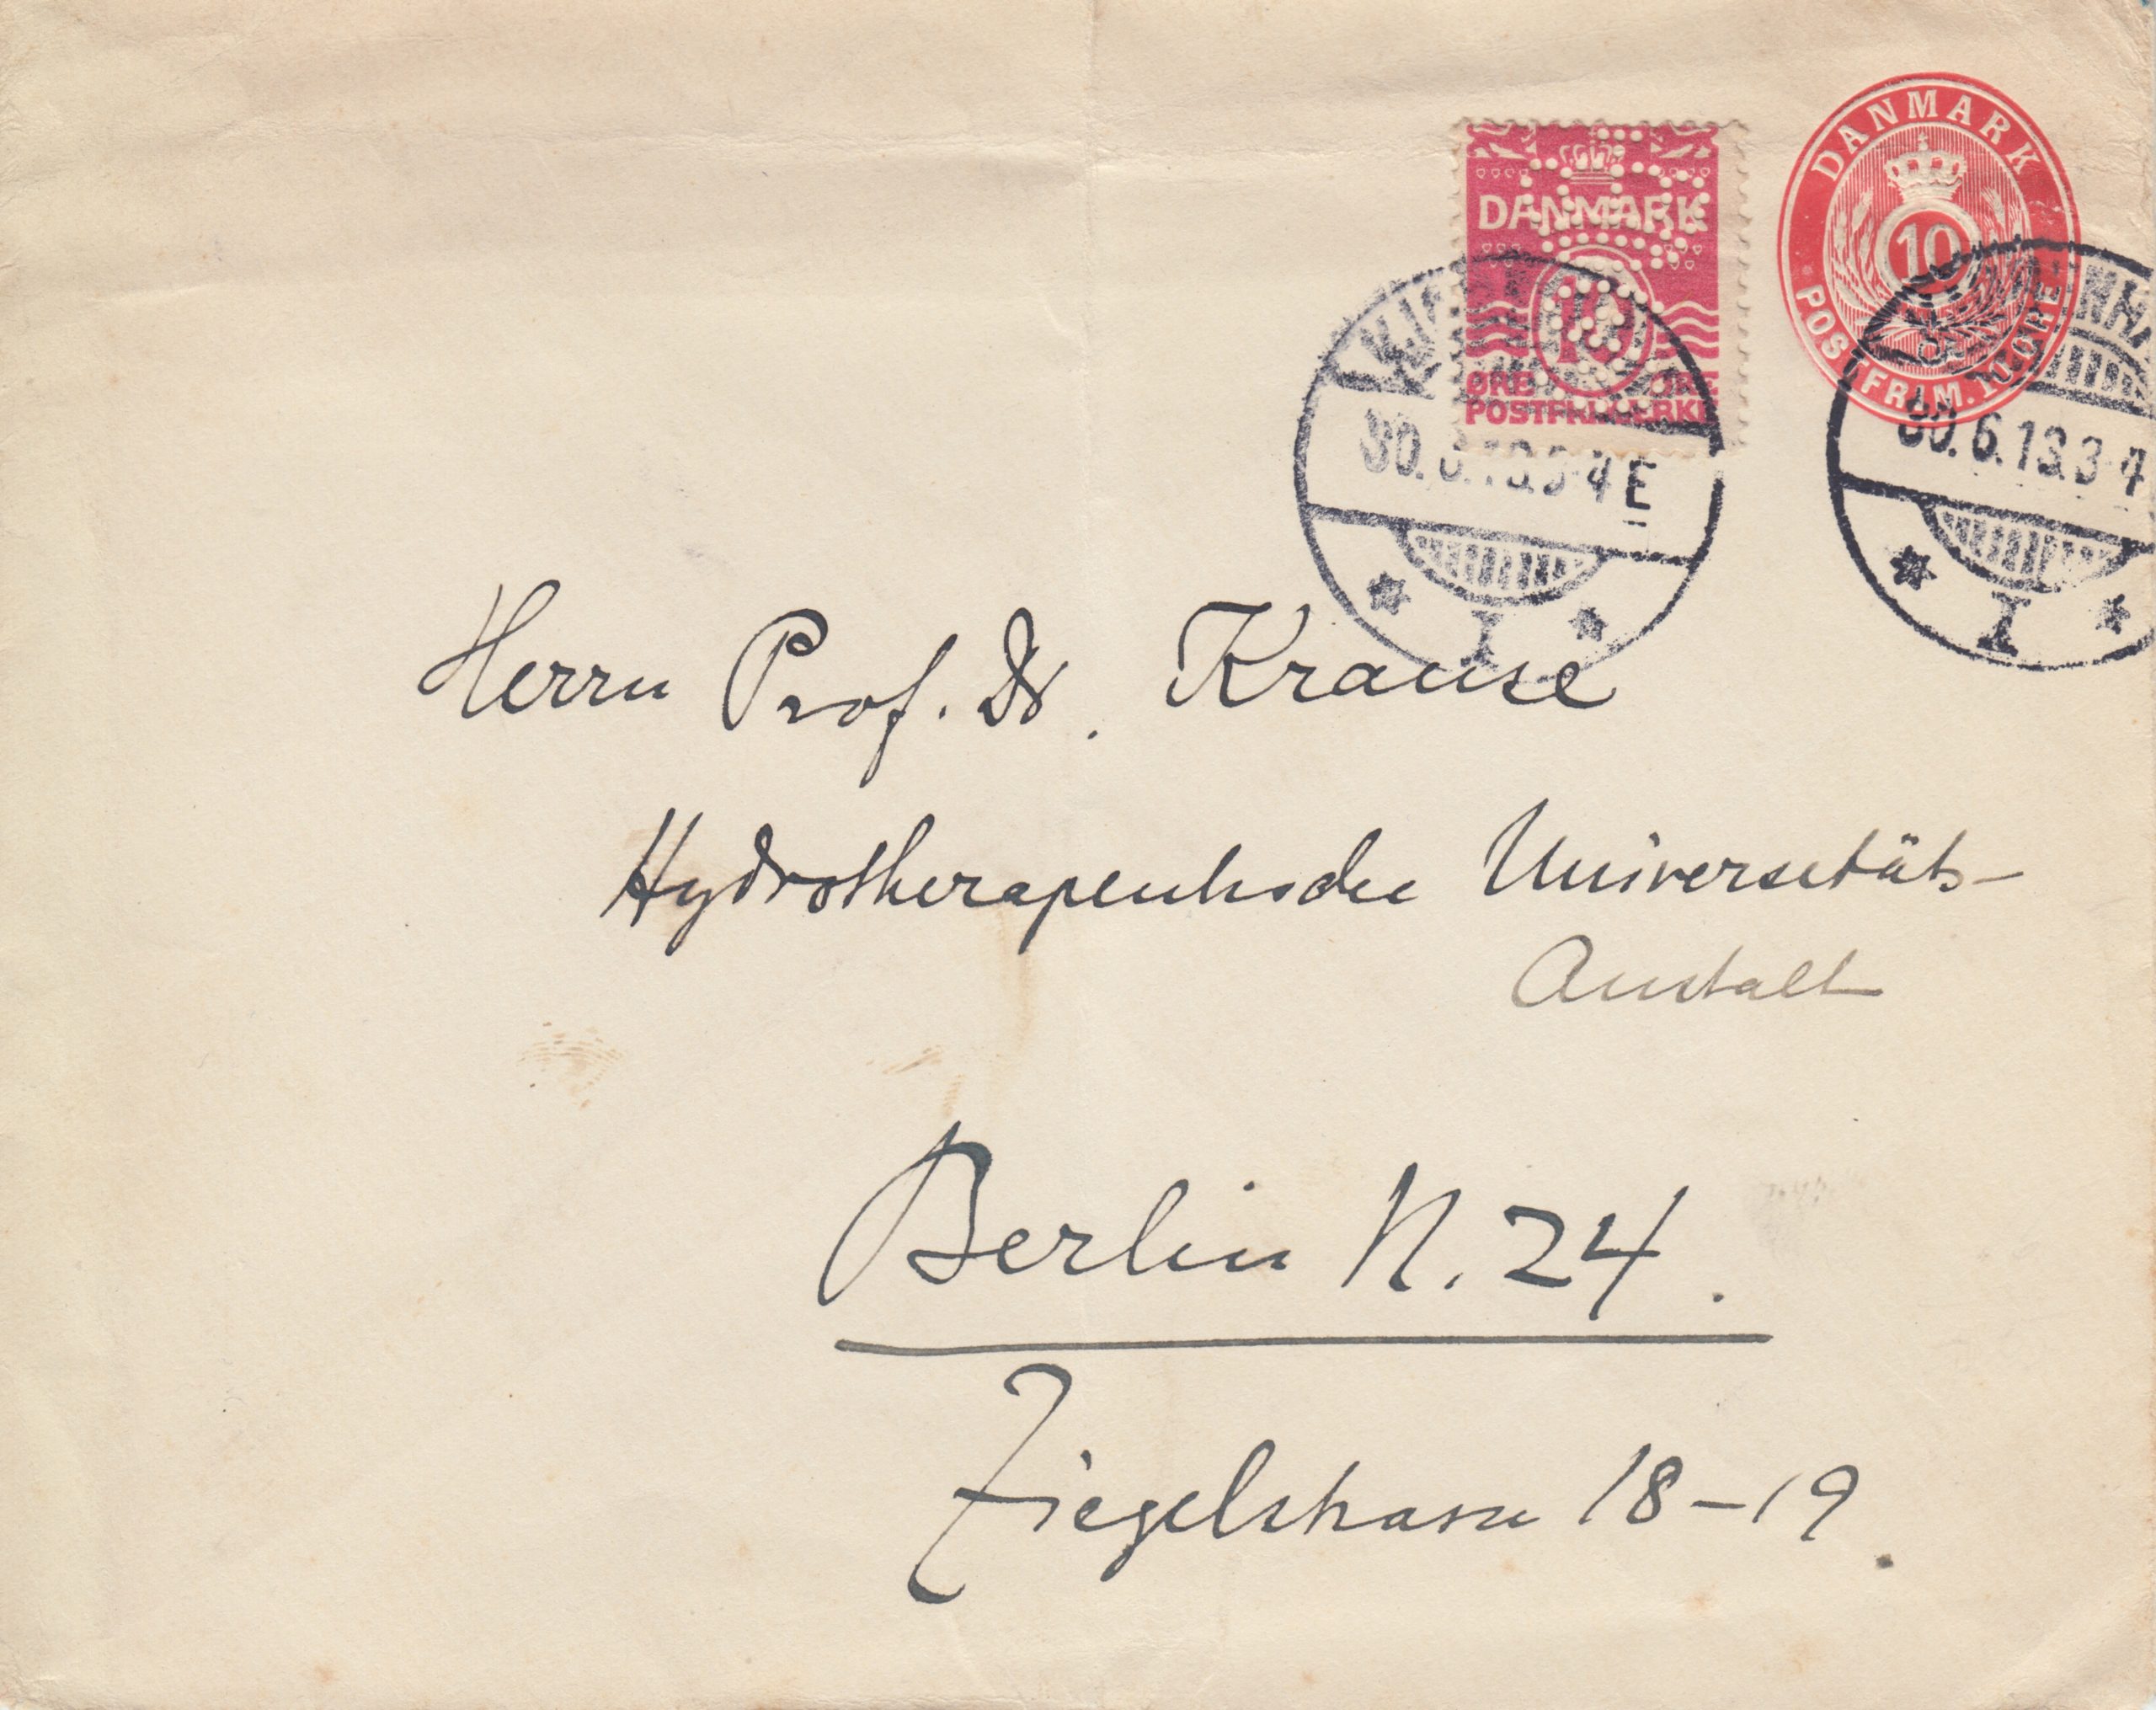 DANMARK
10
ØRE ØRE
POSTFRIMÆRKE
DANMARK
10
POSTFRIM. 10 ØRE
30.6.13.3-4 E
I
30.6.13.3-4
I
Herrn Prof. Dr. Krause
Hydrotherapeutische Universitäts-
Anstalt
Berlin N. 24.
Ziegelstrasse 18-19.